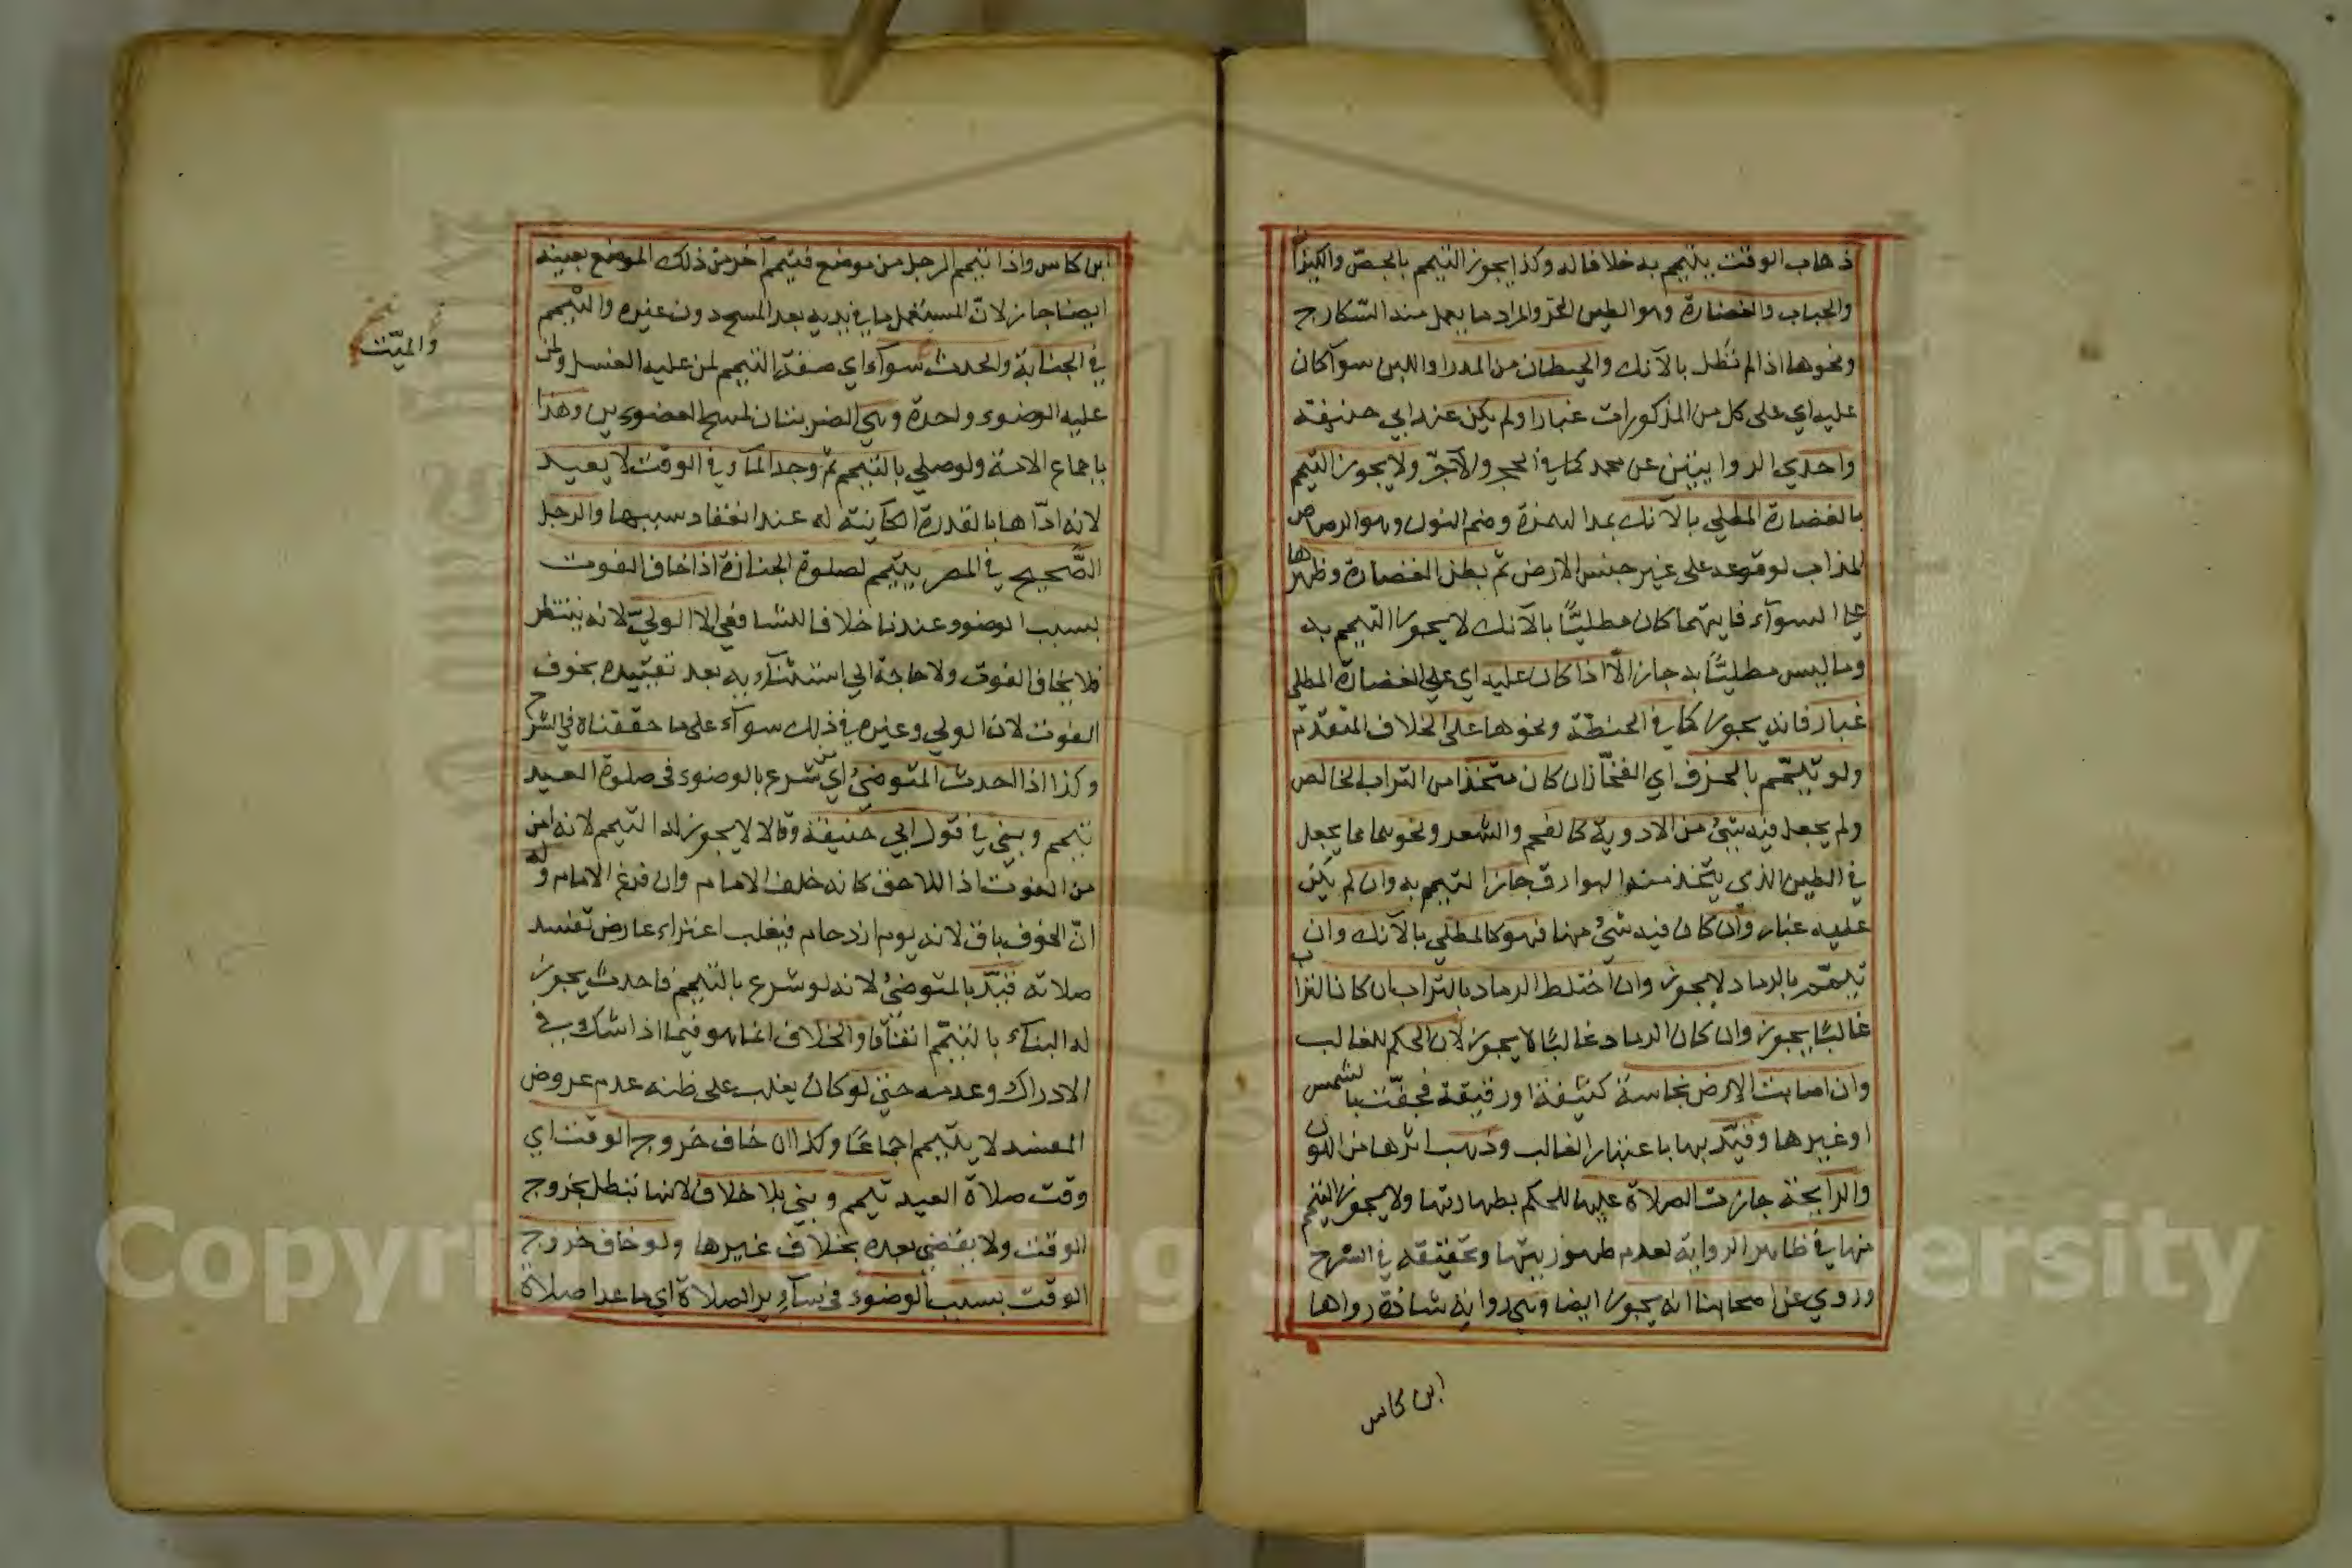 ذهاب الوقت يتيمم به خلافا له وكذا يجوز التيمم بالجصّ والكيزان
والحباب والغضارة وهو الطين الحرّ والمراد ما يعمل منه السّكارج
ونحوها اذا لم تُطل بالآنك والحيطان من المدر او اللبن سوآ كان
عليه اي على كل من المذكورات غبارا ولم يكن عند ابي حنيفة
واحدي الروايتين عن محمد كما في الحجر والآجرّ ولا يجوز التيمم
بالغضارة المطلي بالآنك بمد الهمزة وضم النون وهو الرصاص
المذاب لوقوعه على غير جنس الارض ثم بطن الغضارة وظهرها
على السوآء فايتهما كان مطليّاً بالآنك لا يجوز التيمم به
وما ليس مطليّاً به جاز الّا اذا كان عليه اي على الغضارة المطلي
غبار فانه يجوز كما في الحنطة ونحوها على الخلاف المتقدم
ولو تيمّم بالخزف اي الفخّار ان كان متخذا من التراب الخالص
ولم يجعل فيه شئ من الادوية كالفحم والشعر ونحوهما مما يجعل
في الطين الذي يتخذ منه البوارق جاز التيمم به وان لم يكن
عليه غبار وان كان فيه شئ منها فهو كالمطلي بالآنك وان
تيمّم بالرماد لا يجوز وان اختلط الرماد بالتراب ان كان التراب
غالبًا يجوز وان كان الرماد غالبًا لا يجوز لان الحكم للغالب
وان اصابت الارض نجاسة كثيفة او رقيقة فجفّت بالشمس
او غيرها وقيّد بها باعتبار الغالب وذهب اثرها من اللون
والرايحة جازت الصلاة عليها للحكم بطهارتها ولا يجوز التيمم
منها في ظاهر الرواية لعدم طهوريتها وتحقيقه في الشرح
وروي عن اصحابنا انه يجوز ايضا وهي رواية شاذة رواها
ابن كاس
ابن كاس واذا تيمم الرجل من موضع فتيمم آخر من ذلك الموضع بعينه
ايضا جاز لانّ المستعمل ما في يديه بعد المسح دون غيره والتيمم
في الجنابة والحدث سوآء اي صفة التيمم لمن عليه الغسل ولمن
والميّت
عليه الوضوء واحدة وهي الضربتان لمسح العضوين وهذا
باجماع الامة ولو صلي بالتيمم ثم وجد المآء في الوقت لا يعيد
لانه ادّاها بالقدرة الكاينة له عند انعقاد سببها والرجل
الصّحيح في المصر يتيمم لصلوة الجنازة اذا خاف الفوت
بسبب الوضوء عندنا خلافا للشافعي الا الوليّ لانه ينتظر
فلا يخاف الفوت ولا حاجة الي استثنآء به بعد تقييده بخوف
الفوت لان الولي وغيره في ذلك سوآء على ما حققناه في الشرح
وكذا اذا احدث المتوضئ اي شرع بالوضوء في صلوة العيد
تيمم وبني في قول ابي حنيفة وقالا لا يجوز له التيمم لانه امن
من الفوت اذ اللاحق كانه خلف الامام وان فرغ الامام وله
انّ الخوف باق لانه يوم ازدحام فيغلب اعتراء عارض تفسد
صلاته قيّد بالمتوضئ لانه لو شرع بالتيمم فاحدث يجوز
له البنآء بالتيمّم اتفاقا والخلاف انما هو فيما اذا شك في
الادراك وعدمه حتى لو كان يغلب على ظنه عدم عروض
المفسد لا يتيمم اجماعًا وكذا ان خاف خروج الوقت اي
وقت صلاة العيد تيمم وبني بلا خلاف لانها تبطل بخروج
الوقت ولا يقضي بعده بخلاف غيرها ولو خاف خروج
الوقت بسبب الوضوء في سآير الصلاة اي ما عدا صلاة